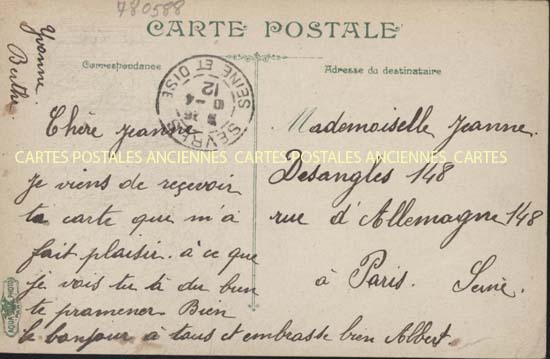 780588
CARTE POSTALE
Yvonne
Berthe
Correspondance
Adresse du destinataire
SÈVRES
SEINE ET OISE
12
6-4
Chère Jeanne
Mademoiselle Jeanne.
CARTES POSTALES ANCIENNES CARTES POSTALES ANCIENNES CARTES
Desangles 148
rue d'Allemagne 148
à Paris. Seine
Je viens de reçevoir
ta carte que m'a
fait plaisir. à ce que
je vois tu à du bien
te pramener Bien
le bonjour à tous et embrasse bien Albert.
AQUA PHOTO